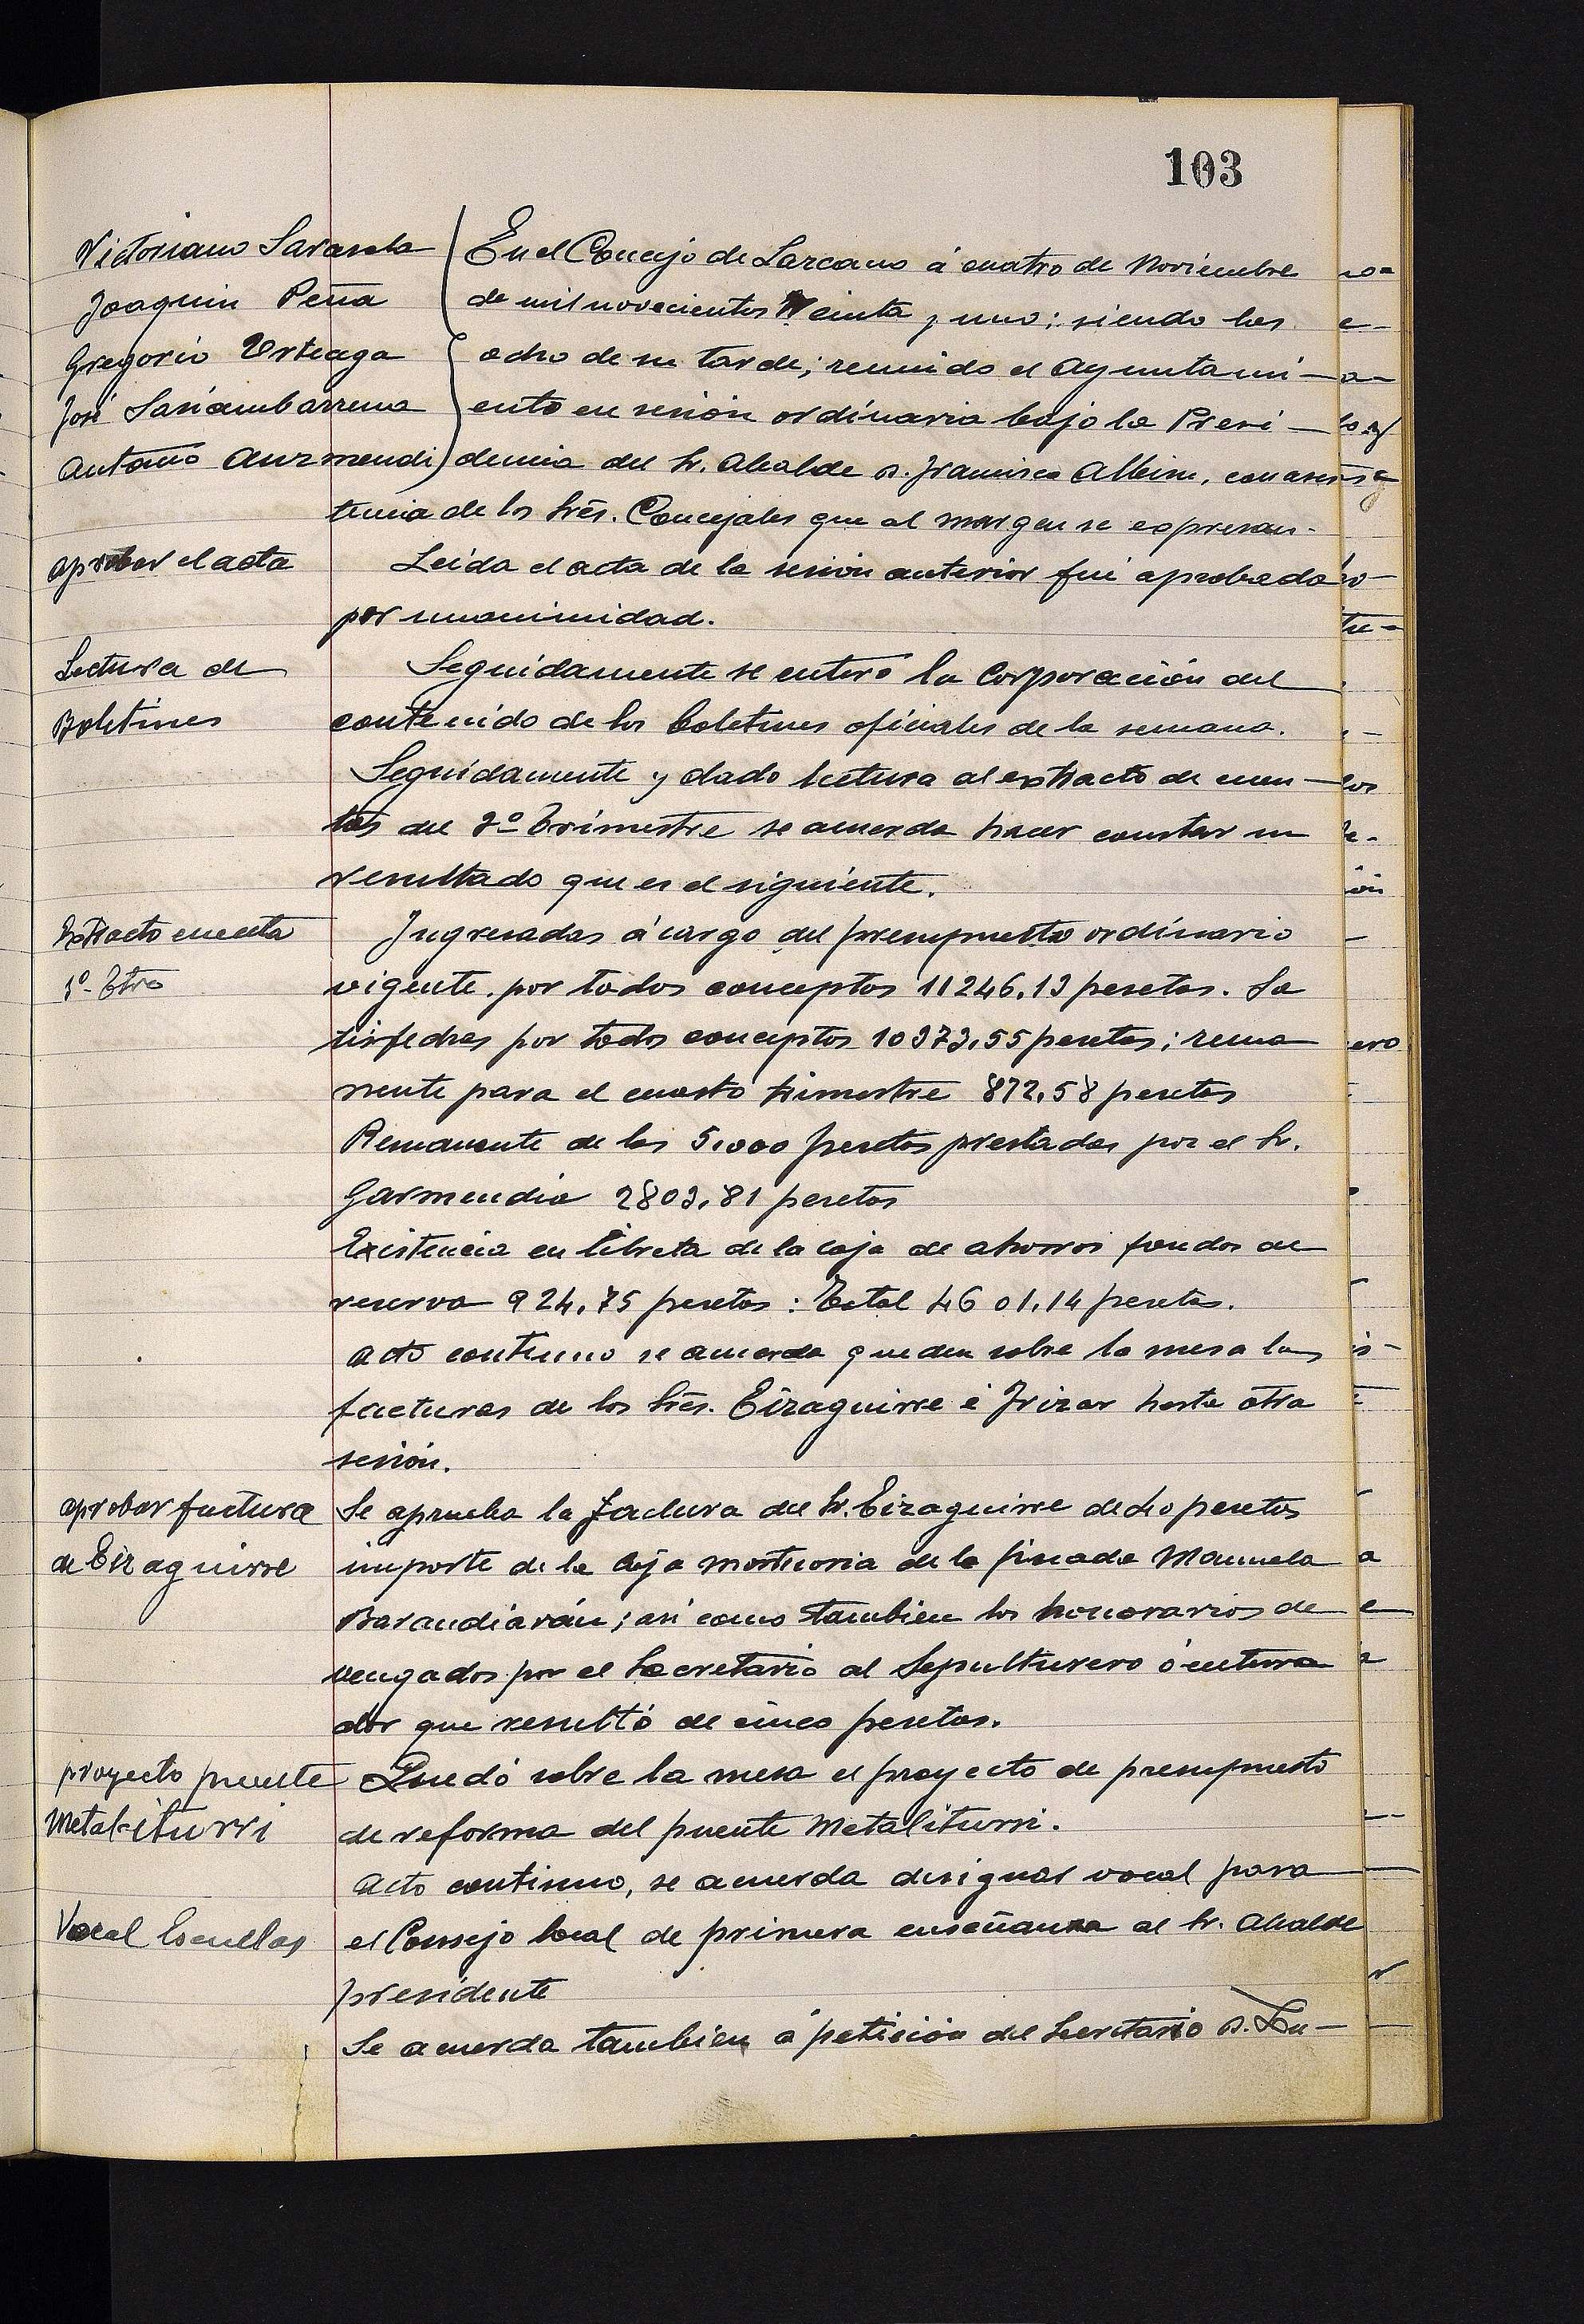 103
Victoriano Sarasola
Joaquin Peña
Gregorio Urteaga
José Sasiambarrena
Antonio Aurzmendi
En el Concejo de Lazcano á cuatro de Noviembre
de mil novecientos treinta y uno; siendo las
ocho de su tarde; reunido el Ayuntami-
ento en sesión ordinaria bajo la Presi-
dencia del Sr. Alcalde D. Francisco Albisu, con asis
tencia de los Srēs. Concejales que al margen se expresan.
aprobar el acta
Leida el acta de la sesión anterior fué aprobada
por unanimidad.
Lectura de
Boletines
Seguidamente se enteró la Corporación del
contenido de los boletines oficiales de la semana.
Seguidamente y dado lectura al extracto de cuen-
tas del 3º trimestre se acuerda hacer constar su
resultado que es el siguiente.
Extracto cuenta
3º Ttre
Ingresadas á cargo del presupuesto ordinario
vigente por todos conceptos 11246,13 pesetas. Sa
tisfechas por todos conceptos 10373,55 pesetas; rema
nente para el cuarto trimestre 872,58 pesetas
Remanente de las 5.000 pesetas prestadas por el Sr.
Garmendia 2803,81 pesetas
Existencia en libreta de la caja de ahorros fondos de
reserva 924,75 pesetas: Total 4601,14 pesetas.
Acto continuo se acuerda queden sobre la mesa las
facturas de los Srēs. Eizaguirre é Irizar hasta otra
sesión.
aprobar factura
de Eizaguirre
Se aprueba la factura del Sr. Eizaguirre de 40 pesetas
importe de la caja mortuoria de la finada Manuela
Barandiarán; asi como tambien los honorarios de
vengados por el Secretario al Sepulturero ó enterra
dor que resultó de cinco pesetas.
proyecto puente
Metal-iturri
Quedó sobre la mesa el proyecto de presupuesto
de reforma del puente Metaliturri.
Acto continuo, se acuerda designar vocal para
Vocal Escuelas
el Consejo local de primera enseñanza al Sr. Alcalde
presidente
Se acuerda tambien á petición del Secretario D. Lu-